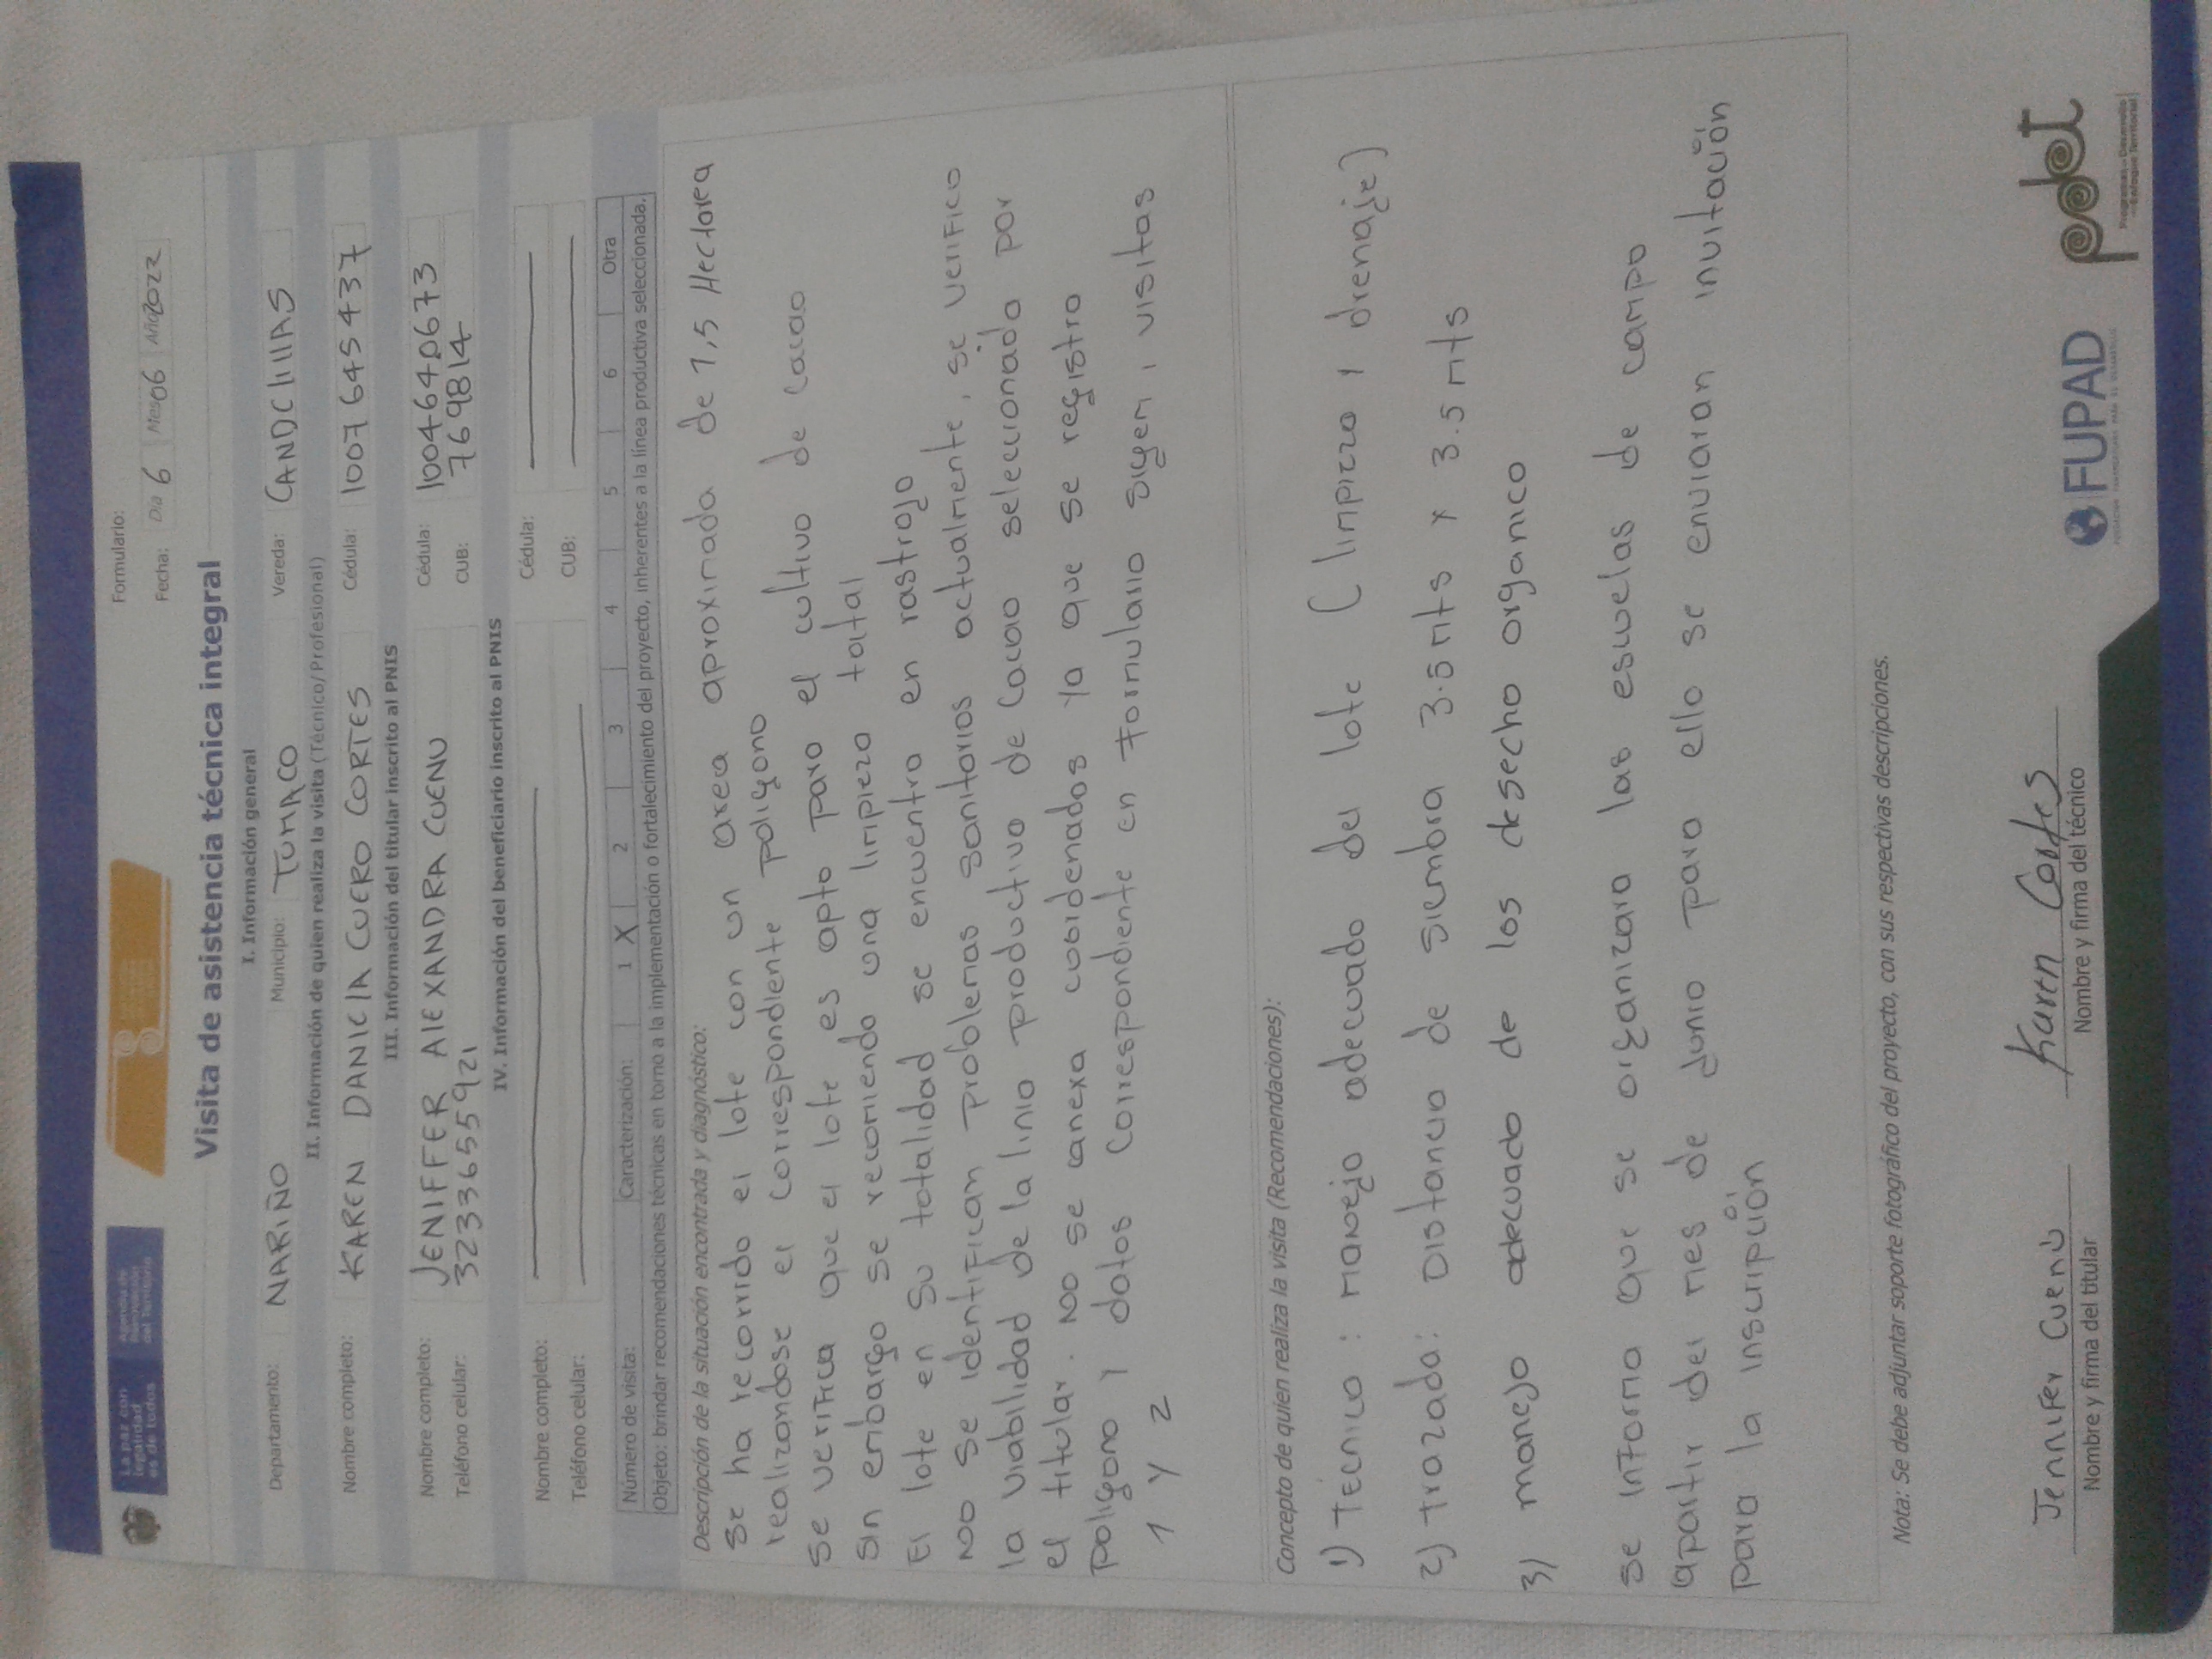 La paz con
legalidad
es de todos
Agencia de
Renovación
del Territorio
Formulario:
Fecha: Día 6 Mes 06 Año 2022
Visita de asistencia técnica integral
I. Información general
Departamento: NARIÑO Municipio: TUMACO Vereda: CANDElillAS
II. Información de quien realiza la visita (Técnico/Profesional)
Nombre completo: KAREN DANIElA CUERO CORTES Cédula: 1007645437
III. Información del titular inscrito al PNIS
Nombre completo: JENIFFER AlEXANDRA CUENU Cédula: 1004640673
Teléfono celular: 3233655921 CUB: 7698814
IV. Información del beneficiario inscrito al PNIS
Nombre completo: Cédula:
Teléfono celular: CUB:
Número de visita: Caracterización: 1 X 2 3 4 5 6 Otra
Objeto: brindar recomendaciones técnicas en torno a la implementación o fortalecimiento del proyecto, inherentes a la línea productiva seleccionada.
Descripción de la situación encontrada y diagnóstico:
se ha recorrido el lote con un area aproximada de 1,5 Hectarea
realizandose el correspondiente poligono
se verifica que el lote es apto para el cultivo de cacao
sin embargo se recomienda una limpieza toital
El lote en su totalidad se encuentra en rastrojo
No se identifican problemas sanitarios actualmente, se verifico
la viabilidad de la linia productivo de cacao seleccionado por
el titular. No se anexa cooidenados ya que se registro
poligono y datos correspondiente en formulario sigem, visitas
1 y 2
Concepto de quien realiza la visita (Recomendaciones):
1) Técnico: manejo adecuado del lote (limpieza y drenaje)
2) trazada: Distancia de siembra 3.5 mts x 3.5 mts
3) manejo adecuado de los desecho organico
se informa que se organizara las escuelas de campo
apartir del mes de Junio para ello se enviaran invitación
para la inscripción
Nota: Se debe adjuntar soporte fotográfico del proyecto, con sus respectivas descripciones.
Jennifer Cuenú
Nombre y firma del titular
Karen Cortes
Nombre y firma del técnico
FUPAD
pdet
Programas de Desarrollo
con Enfoque Territorial